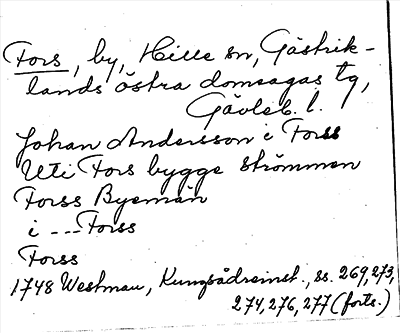 Fors, by, Hille sn, Gästrik-
lands östra domsagas tg,
Gävleb. l.
Johan Andersson i Forss
Uti Fors bygge strömmen
Forss Byemän
i --- Forss
Forss
1748 Westman, Kungsådreinst., ss. 269, 273,
274, 276, 277 (forts.)